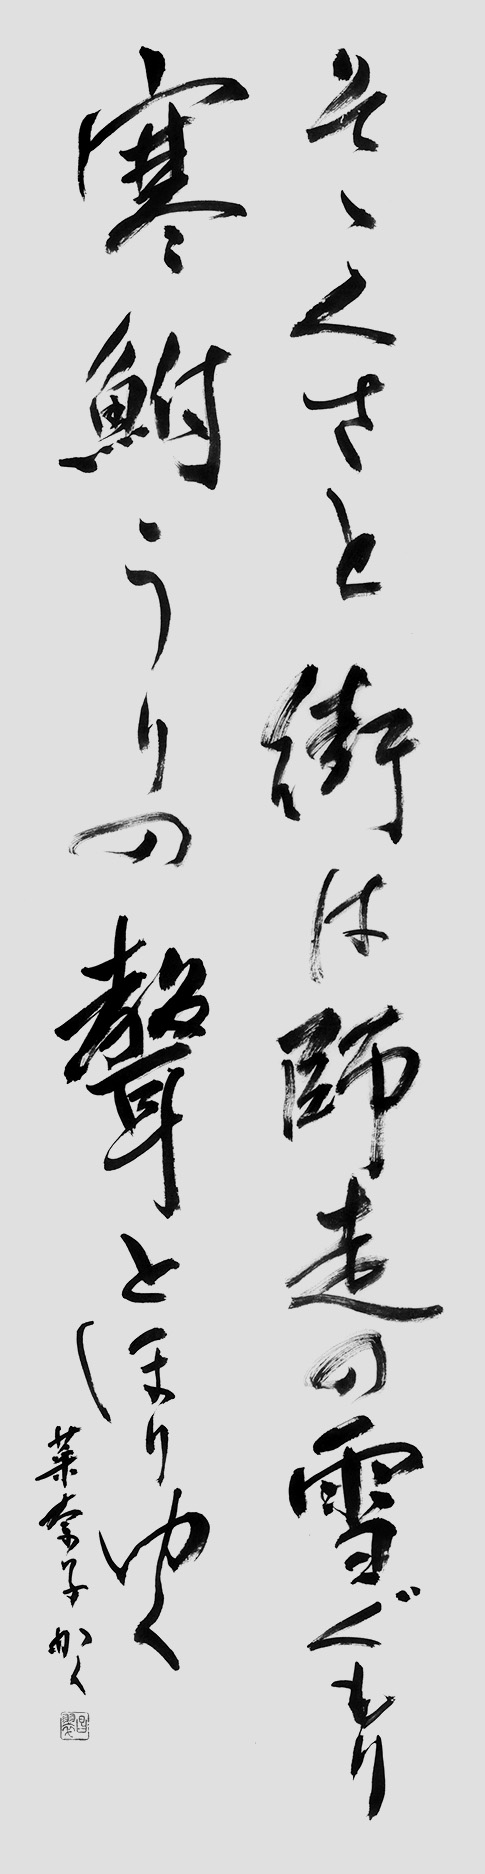 そゝくさと街は師走の雪ぐもり
寒鮒うりの聲とほりゆく
菜奈子かく